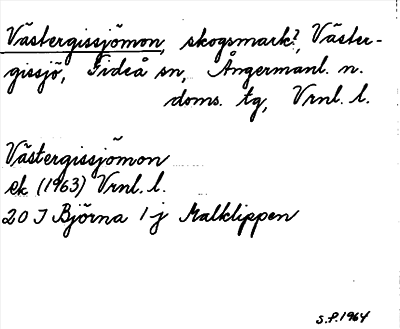 Västergissjömon, skogsmark?, Väster-
gissjö, Fideå sn, Ångermanl. n.
doms. tg, Vrnl. l.
Västergissjömon
ek (1963) Vrnl. l.
20 J Björna 1 j Malklippen
S.P. 1964